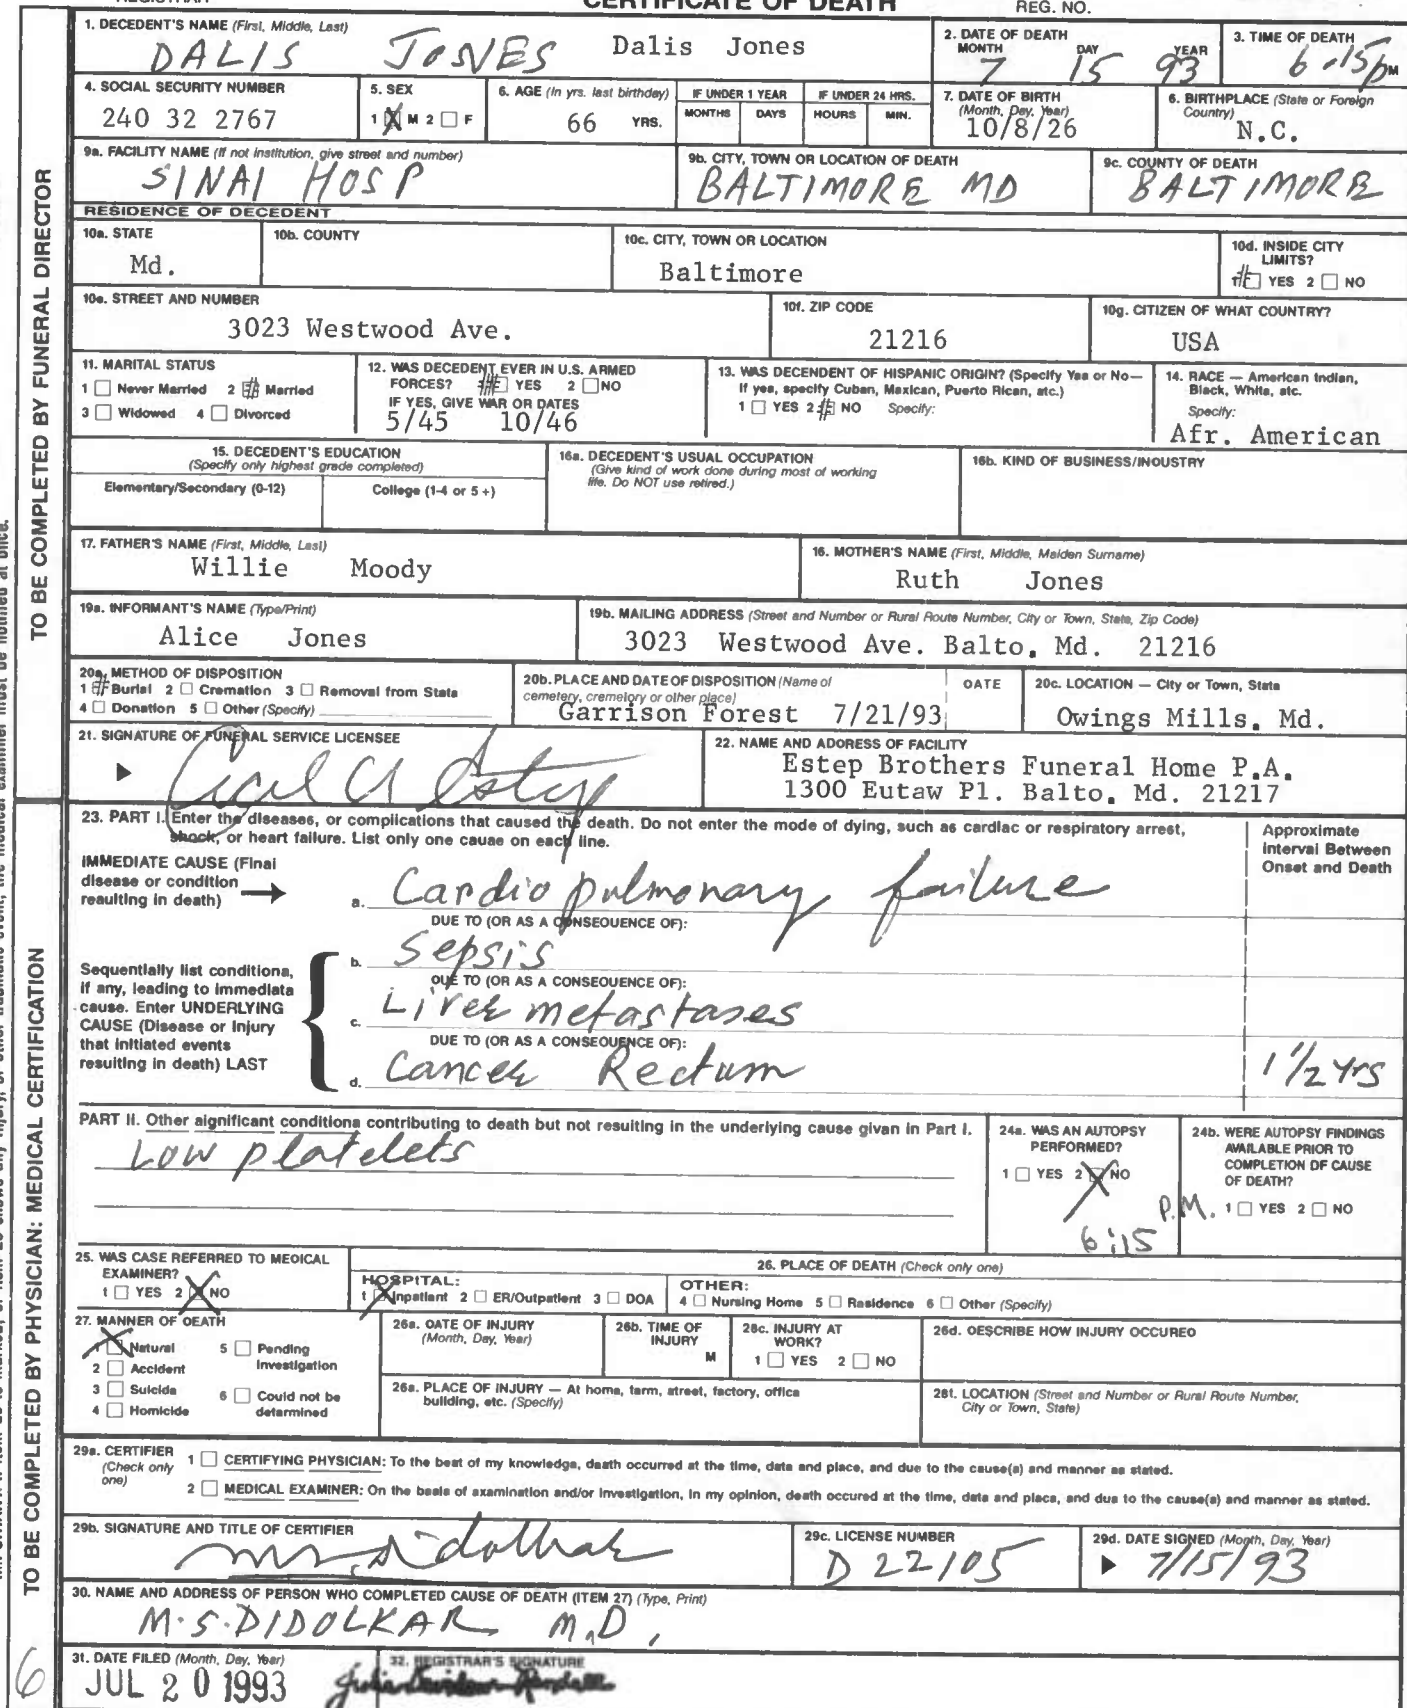 CERTIFICATE OF DEATH
REG. NO.
1. DECEDENT'S NAME (First, Middle, Last)
DALIS JONES Dalis Jones
2. DATE OF DEATH
MONTH DAY YEAR
7 15 93
3. TIME OF DEATH
6:15 PM
4. SOCIAL SECURITY NUMBER
240 32 2767
5. SEX
1 X M 2 ☐ F
6. AGE (In yrs. last birthday)
66 YRS.
IF UNDER 1 YEAR
MONTHS DAYS
IF UNDER 24 HRS.
HOURS MIN.
7. DATE OF BIRTH
(Month, Day, Year)
10/8/26
6. BIRTHPLACE (State or Foreign
Country)
N.C.
9a. FACILITY NAME (If not institution, give street and number)
SINAI HOSP
9b. CITY, TOWN OR LOCATION OF DEATH
BALTIMORE MD
9c. COUNTY OF DEATH
BALTIMORE
RESIDENCE OF DECEDENT
10a. STATE
Md.
10b. COUNTY
10c. CITY, TOWN OR LOCATION
Baltimore
10d. INSIDE CITY
LIMITS?
1 # YES 2 ☐ NO
10e. STREET AND NUMBER
3023 Westwood Ave.
10f. ZIP CODE
21216
10g. CITIZEN OF WHAT COUNTRY?
USA
11. MARITAL STATUS
1 ☐ Never Married 2 # Married
3 ☐ Widowed 4 ☐ Divorced
12. WAS DECEDENT EVER IN U.S. ARMED
FORCES? # YES 2 ☐ NO
IF YES, GIVE WAR OR DATES
5/45 10/46
13. WAS DECENDENT OF HISPANIC ORIGIN? (Specify Yes or No—
If yes, specify Cuban, Mexican, Puerto Rican, etc.)
1 ☐ YES 2 # NO Specify:
14. RACE — American Indian,
Black, White, etc.
Specify:
Afr. American
15. DECEDENT'S EDUCATION
(Specify only highest grade completed)
Elementary/Secondary (0-12) College (1-4 or 5+)
16a. DECEDENT'S USUAL OCCUPATION
(Give kind of work done during most of working
life. Do NOT use retired.)
16b. KIND OF BUSINESS/INOUSTRY
17. FATHER'S NAME (First, Middle, Last)
Willie Moody
16. MOTHER'S NAME (First, Middle, Maiden Surname)
Ruth Jones
19a. INFORMANT'S NAME (Type/Print)
Alice Jones
19b. MAILING ADDRESS (Street and Number or Rural Route Number, City or Town, State, Zip Code)
3023 Westwood Ave. Balto. Md. 21216
20a. METHOD OF DISPOSITION
1 # Burial 2 ☐ Cremation 3 ☐ Removal from State
4 ☐ Donation 5 ☐ Other (Specify)
20b. PLACE AND DATE OF DISPOSITION (Name of
cemetery, crematory or other place)
Garrison Forest 7/21/93
OATE
20c. LOCATION — City or Town, State
Owings Mills, Md.
21. SIGNATURE OF FUNERAL SERVICE LICENSEE
22. NAME AND ADDRESS OF FACILITY
Estep Brothers Funeral Home P.A.
1300 Eutaw Pl. Balto. Md. 21217
TO BE COMPLETED BY FUNERAL DIRECTOR
23. PART I. Enter the diseases, or complications that caused the death. Do not enter the mode of dying, such as cardiac or respiratory arrest,
shock, or heart failure. List only one cause on each line.
Approximate
Interval Between
Onset and Death
IMMEDIATE CAUSE (Final
disease or condition
resulting in death)
a. Cardiopulmonary failure
DUE TO (OR AS A CONSEQUENCE OF):
b. Sepsis
DUE TO (OR AS A CONSEQUENCE OF):
c. Liver metastases
DUE TO (OR AS A CONSEQUENCE OF):
d. Cancer Rectum 1 1/2 yrs
Sequentially list conditions,
if any, leading to immediate
cause. Enter UNDERLYING
CAUSE (Disease or Injury
that initiated events
resulting in death) LAST
PART II. Other significant conditions contributing to death but not resulting in the underlying cause given in Part I.
Low platelets
24a. WAS AN AUTOPSY
PERFORMED?
1 ☐ YES 2 X NO
6:15 P.M.
24b. WERE AUTOPSY FINDINGS
AVAILABLE PRIOR TO
COMPLETION OF CAUSE
OF DEATH?
1 ☐ YES 2 ☐ NO
25. WAS CASE REFERRED TO MEDICAL
EXAMINER?
1 ☐ YES 2 X NO
26. PLACE OF DEATH (Check only one)
HOSPITAL:
1 X Inpatient 2 ☐ ER/Outpatient 3 ☐ DOA
OTHER:
4 ☐ Nursing Home 5 ☐ Residence 6 ☐ Other (Specify)
27. MANNER OF DEATH
1 X Natural 5 ☐ Pending
Investigation
2 ☐ Accident
3 ☐ Suicide 6 ☐ Could not be
determined
4 ☐ Homicide
26a. DATE OF INJURY
(Month, Day, Year)
26b. TIME OF
INJURY
M
28c. INJURY AT
WORK?
1 ☐ YES 2 ☐ NO
26d. OESCRIBE HOW INJURY OCCUREO
26a. PLACE OF INJURY — At home, farm, street, factory, office
building, etc. (Specify)
281. LOCATION (Street and Number or Rural Route Number,
City or Town, State)
29a. CERTIFIER
(Check only
one)
1 ☐ CERTIFYING PHYSICIAN: To the best of my knowledge, death occurred at the time, date and place, and due to the cause(s) and manner as stated.
2 ☐ MEDICAL EXAMINER: On the basis of examination and/or investigation, in my opinion, death occured at the time, data and place, and due to the cause(s) and manner as stated.
29b. SIGNATURE AND TITLE OF CERTIFIER
29c. LICENSE NUMBER
D 22105
29d. DATE SIGNED (Month, Day, Year)
7/15/93
30. NAME AND ADDRESS OF PERSON WHO COMPLETED CAUSE OF DEATH (ITEM 27) (Type, Print)
M.S. DIDOLKAR M.D,
31. DATE FILED (Month, Day, Year)
JUL 20 1993
32. REGISTRAR'S SIGNATURE
TO BE COMPLETED BY PHYSICIAN: MEDICAL CERTIFICATION
6